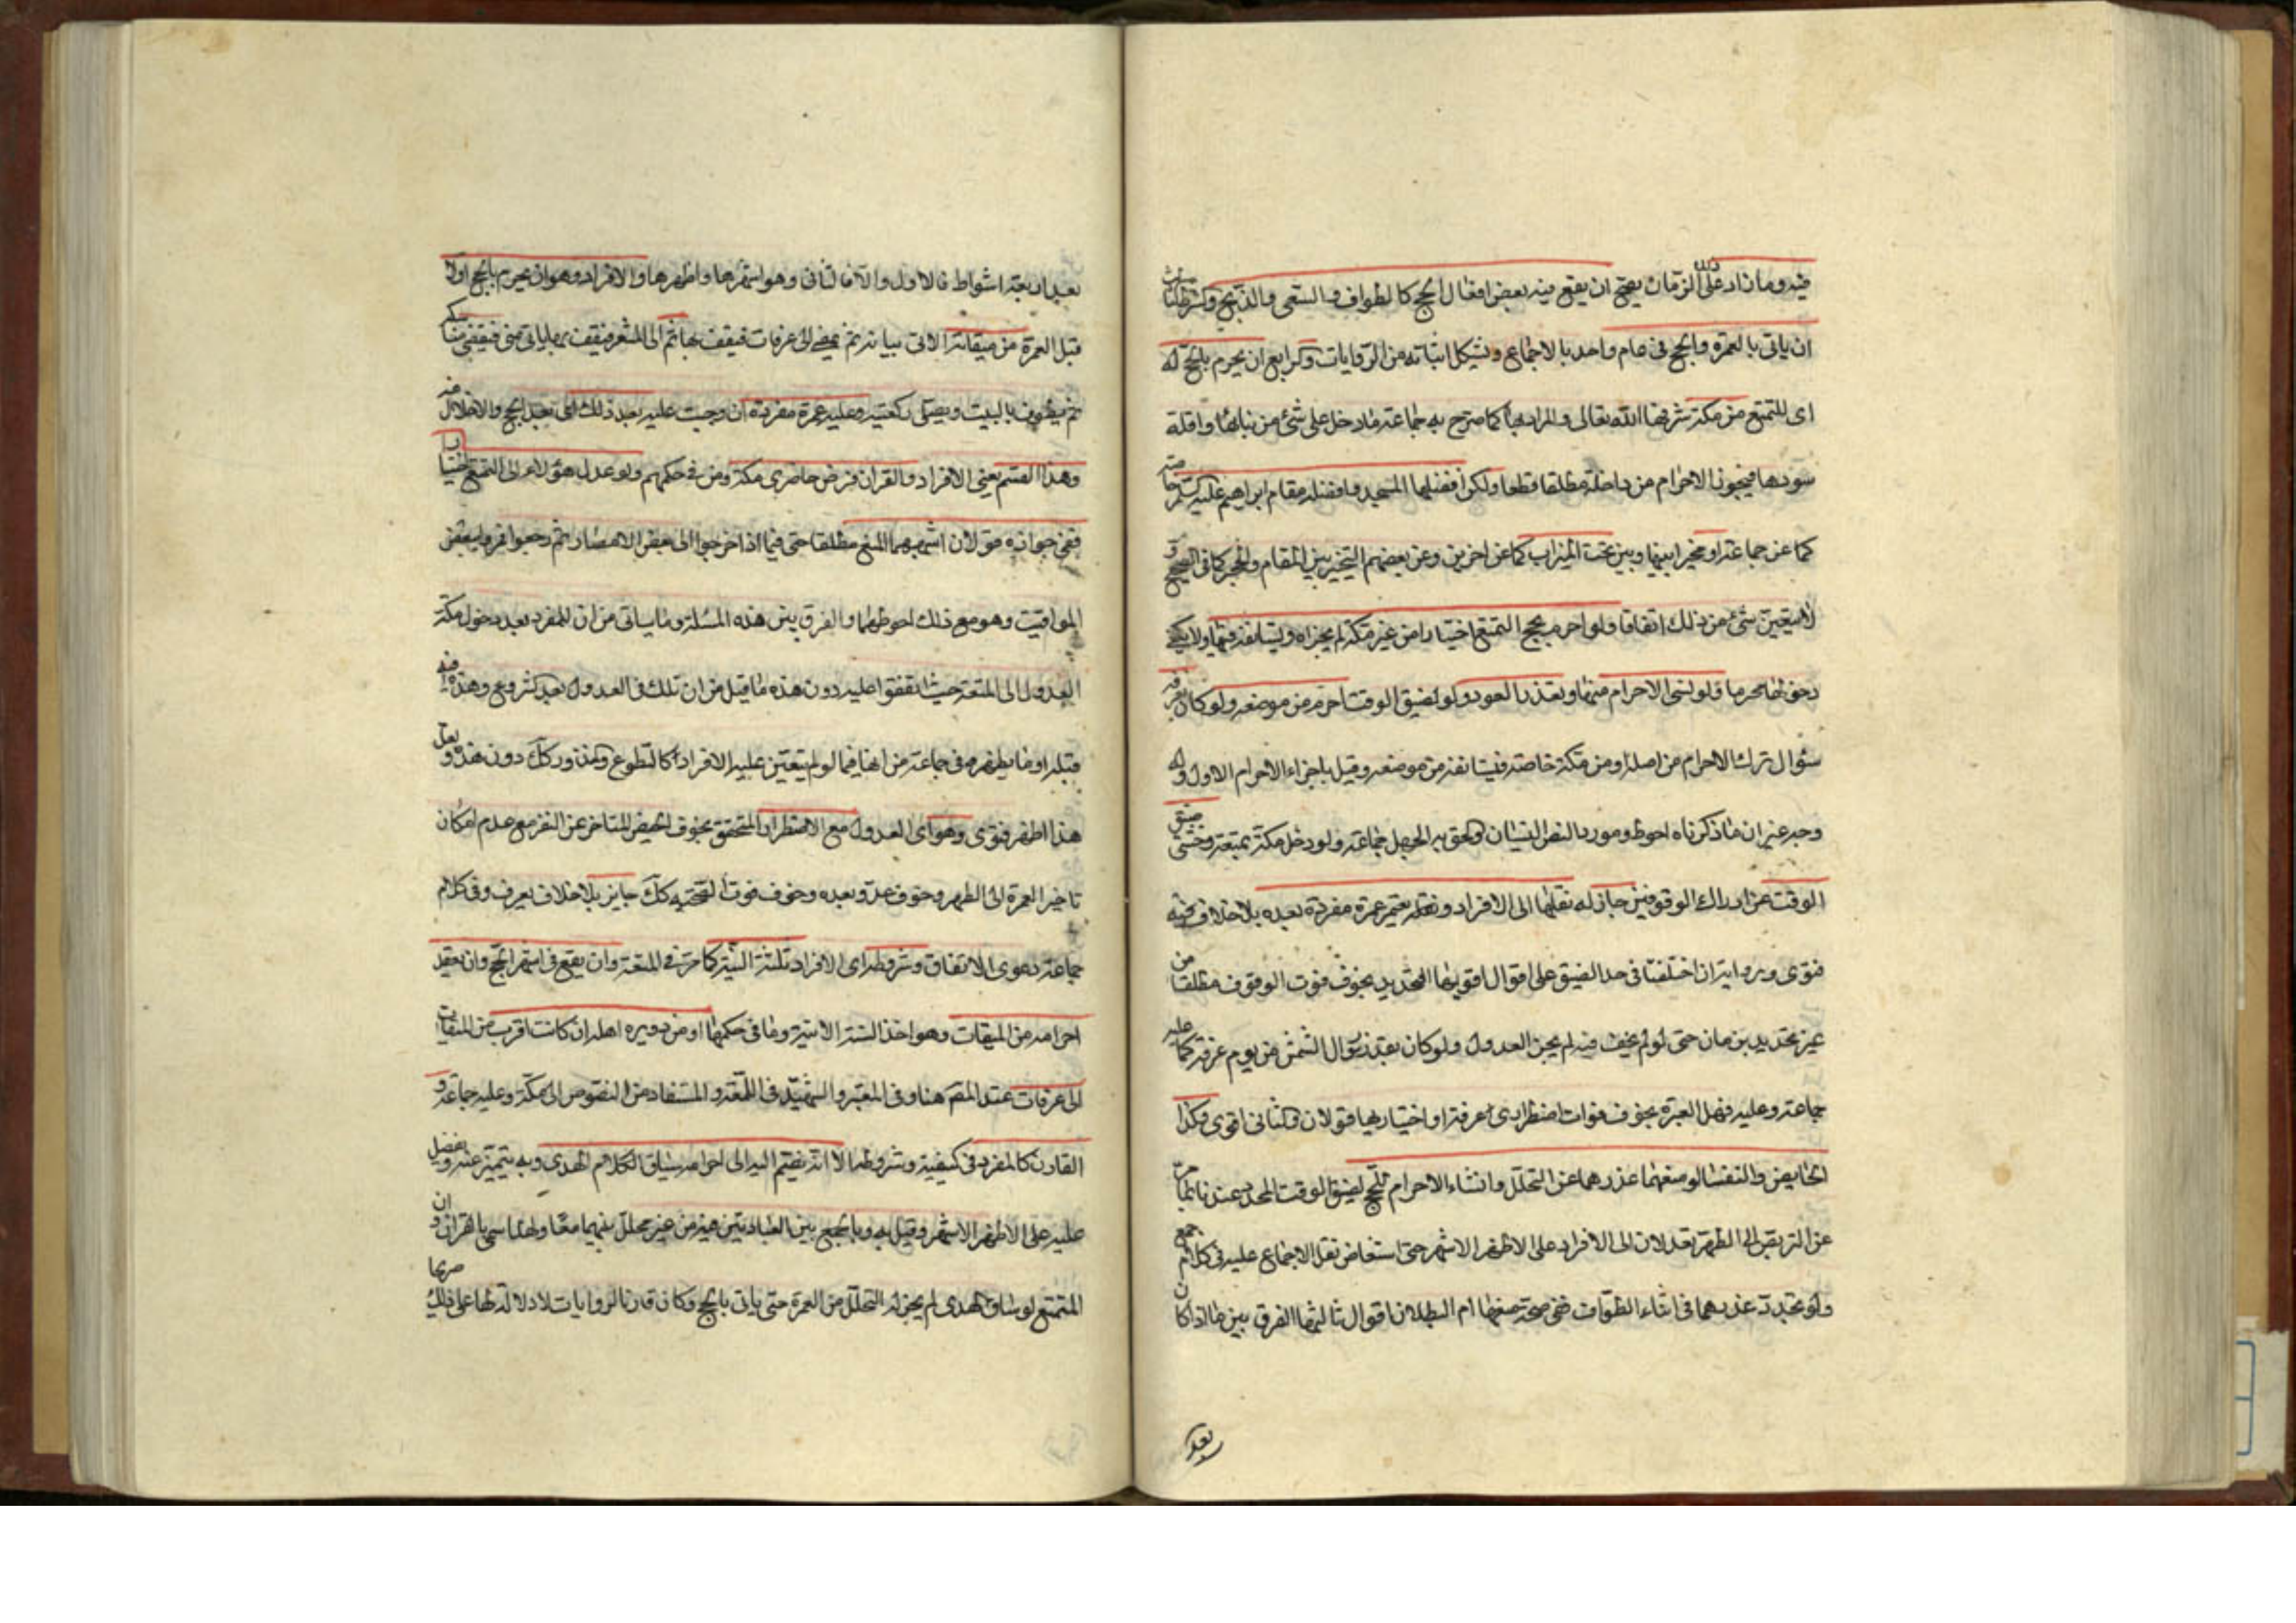 فيه وما زاد على ذلك الزمان يصح ان يقع فيه بعض افعال الحج كالطواف والسعي والذبح وكثرطنا الثالث
ان ياتي بالعمرة والحج في عام واحد بالاجماع ويشكل اثباته من الروايات وكرابع ان يحرم بالحج له
اي للتمتع من مكة شرفها الله تعالى والمراد بها كما صرح به جماعة ما دخل على شئ من بنائها واقله
سورها فيجوز الاحرام من داخله مطلقا قطعا ولكن افضلها المسجد وافضله مقام ابراهيم عليه السلام خاصة
كما عن جماعة او مخيرا بينها وبين تحت الميزاب كما عن اخرين وعن بعضهم التخيير بين المقام والحجر كما في الصحيح و
لا يتعين شئ من ذلك اتفاقا ولو احرم بحج التمتع اختيارا من غير مكة لم يجزاه ويستانفه فيها ولا يكفي
دخولها محرما ولو نسي الاحرام منها وتعذر العود ولو لضيق الوقت احرم من موضعه ولو كان بعرفة
سئوال ترك الاحرام من اصله او من مكة خاصة فيستانفه من موضعه وقيل باجزاء الاحرام الاول وله
وجه غير ان ما ذكرناه احوط ومورد النص النسيان والحق به الجهل جماعة ولو دخل مكة بمتعة وخشي ضيق
الوقت عن ادراك الوقوفين جاز له نقلها الى الافراد ويعتمر عمرة مفردة بعده بلا خلاف فيه
فتوى ورواية ان اختلفتا في حد الضيق على اقوال اقويها التحديد بخوف فوت الوقوف مطلقا من
غير تحديد بزمان حتى لو لم يخف فيه لم يجز العدول ولو كان بعد زوال الشمس من يوم عرفة كما عليه
جماعة وعليه فهل العبرة بخوف فوات اضطراري عرفة او اختياريها قولان والثاني اقوى وكذا
الحايض والنفساء لو منعهما عذرهما عن التحلل وانشاء الاحرام للحج لضيق الوقت المحدد عندنا بما مر
عن التربص الى الطهر تعدلان الى الافراد على الاظهر الاشهر حتى استفاض نقل الاجماع عليه في كلام جمع
ولو تجدد عذرهما في اثناء الطواف ففي صحة متعتهما ام البطلان اقوال ثالثها الفرق بين ما اذا كان
بعد
بعد اربعة اشواط فالاول والا فالثاني وهو اشهرها واظهرها والافراد وهو ان يحرم بالحج اولا
قبل العمرة من ميقاته الاتي بيانه ثم يمضي الى عرفات فيقف بها ثم الى المشعر فيقف به ثم ياتي منى فيقضي مناسكه
ثم يطوف بالبيت ويصلي ركعتيه وعليه عمرة مفردة ان وجبت عليه بعد ذلك اي بعد الحج والاحلال منه
وهذا القسم يعني الافراد والقران فرض حاضري مكة ومن في حكمهم ولو عدل هؤلاء الى التمتع اختيارا
ففي جوازه قولان اشهرهما المنع مطلقا حتى فيما اذا خرجوا الى بعض الامصار ثم رجعوا فمروا ببعض
المواقيت وهو مع ذلك احوطهما والفرق بين هذه المسئلة وما سياتي من ان للمفرد بعد دخول مكة
العدول الى المتعة حيث اتفقوا عليه دون هذه ما قيل من ان تلك في العدول بعد الشروع وهذه فيه
قبله او ما يظهر من جماعة من انها فيما لو لم يتعين عليه الافراد كالتطوع والمنذور كك دون هذه ولعل
هذا اظهر فتوى وهو اي العدول مع الاضطرار المتحقق بخوف الحيض المتاخر عن النفر مع عدم امكان
تاخير العمرة الى الطهر وخوف عدو بعده وخوف فوت الصحبة كك جايز بلا خلاف يعرف وفي كلام
جماعة دعوى الاتفاق وشروطه اي الافراد ثلثة النية كما مر في المتعة وان يقع في اشهر الحج وان يعقد
احرامه من الميقات وهو احد الستة الاتية وما في حكمها او من دويرة اهله ان كانت اقرب من الميقات
الى عرفات عند المصنف هنا وفي المعتبر والشهيد في اللمعة والمستفاد من النصوص الى مكة وعليه جماعة و
القارن كالمفرد في كيفيته وشروطه الا انه يضم اليه الى احرامه سياق الكلام الهدى وبه يتميز عنه ويفضل
عليه على الاظهر الاشهر وقيل به وبالجمع بين العبادتين فيه من غير تحلل بينهما معا ولهذا سمي بالقران وان
المتمتع لو ساق الهدى لم يجز له التحلل من العمرة حتى ياتي بالحج وكان قارنا لروايات لا دلالة لها على ذلك صريحا